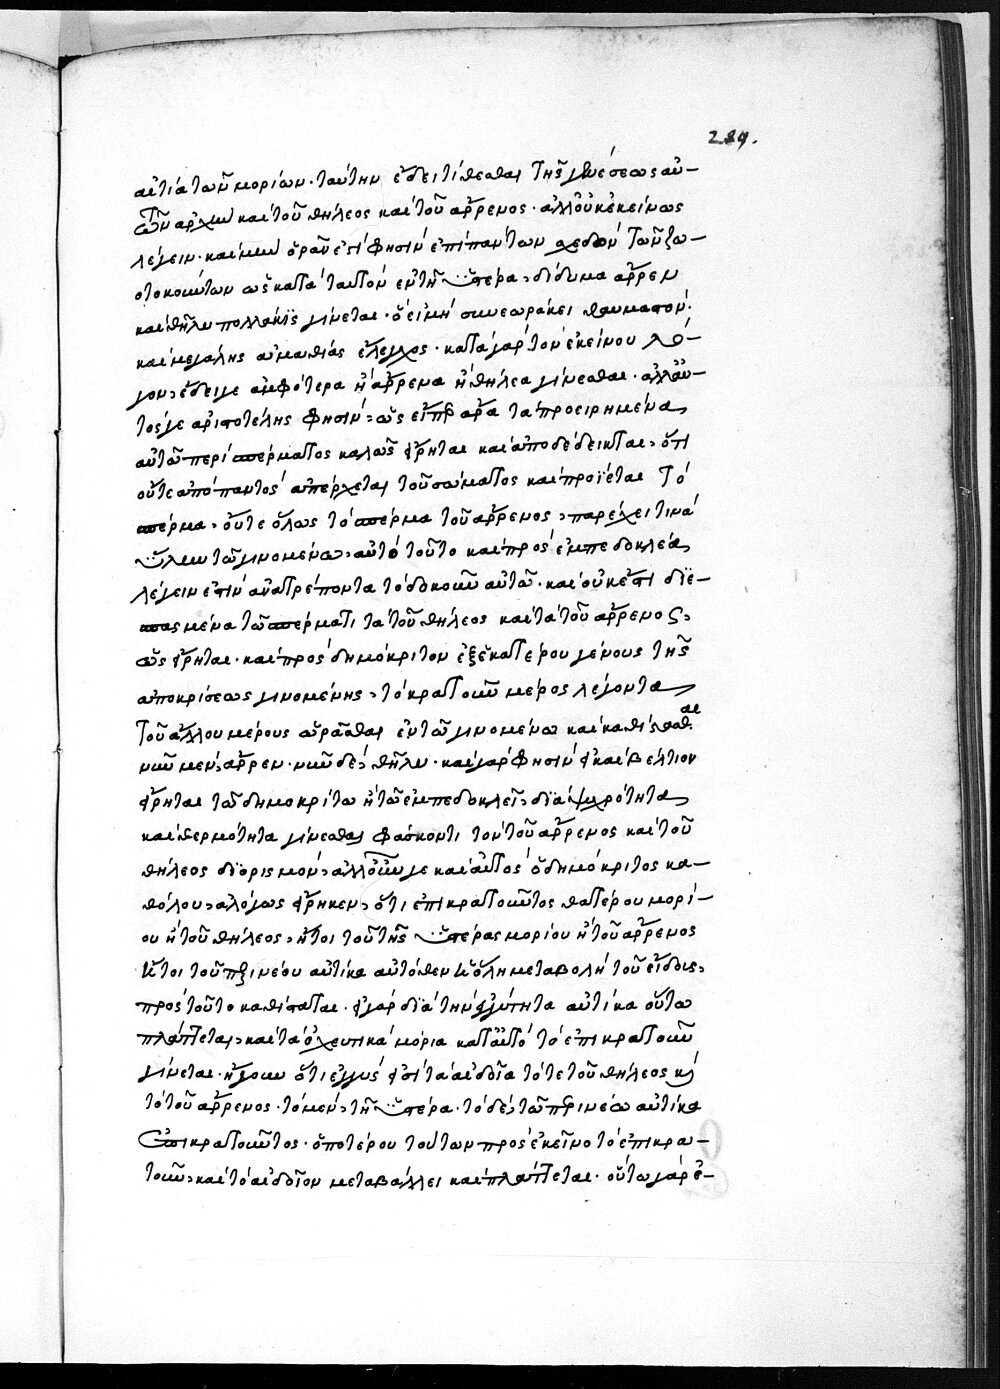 289.
αἰτία τῶν μορίων. ταύτην ἔδει τίθεσθαι τῆς γενέσεως αὐ-
τῶν ἀρχὴν καὶ τοῦ θήλεος καὶ τοῦ ἄρρενος. ἀλλ' οὐκ ἐκείνως
λέγειν. καὶ μὴν ὁρᾶν ἔτι φησὶν ἐπὶ πάντων σχεδὸν τῶν ζω-
οτοκούντων ὡς κατὰ ταυτὸν ἐν τῇ ὑστέρα, δίδυμα ἄρρεν
καὶ θῆλυ πολλάκις γίνεται. ὃ εἰ μὴ συνεωράκει θαυμαστόν.
καὶ μεγάλης ἀμαθίας ἔλεγχος. κατὰ γὰρ τὸν ἐκείνου λό-
γον, ἔδει γε ἀμφότερα ἢ ἄρρενα ἢ θήλεα γίνεσθαι. ἀλλ' αὐ-
τός γε ἀριστοτέλης φησίν, ὡς εἴπερ ἄρα τὰ προειρημένα
αὐτῷ περὶ σπέρματος καλῶς εἴρηται καὶ ἀποδέδεικται, ὅτι
οὔτε ἀπὸ παντὸς ἀπέρχεται τοῦ σώματος καὶ προΐεται τὸ
σπέρμα, οὔτε ὅλως τὸ σπέρμα τοῦ ἄρρενος, παρέχει τινὰ
ὕλην τῷ γινομένῳ, αὐτὸ τοῦτο καὶ πρὸς ἐμπεδοκλέα
λέγειν ἐστὶν ἀνατρέποντα τὸ δοκοῦν αὐτῷ. καὶ οὐκ ἔστι διε-
σπασμένα τῷ σπέρματι τὰ τοῦ θήλεος καὶ τὰ τοῦ ἄρρενος,
ὡς εἴρηται. καὶ πρὸς δημόκριτον ἐξ ἑκατέρου γένους τῆς
ἀποκρίσεως γινομένης, τὸ κρατοῦν μέρος λέγοντα
τοῦ ἄλλου μέρους ὁρᾶσθαι ἐν τῷ γινομένω καὶ καθίστασθαι
νῦν μὲν, ἄρρεν. νῦν δὲ, θῆλυ. καὶ γὰρ φησὶν εἰ καὶ βέλτιον
εἴρηται τῷ δημοκρίτω ἢ τῷ ἐμπεδοκλεῖ, διὰ ψυχρότητα
καὶ θερμότητα γίνεσθαι φάσκοντι τὸν τοῦ ἄρρενος καὶ τοῦ
θήλεος διορισμόν, ἀλλ' οὖν γε καὶ αὐτὸς ὁ δημόκριτος κα-
θόλου, ἀλόγως εἴρηκεν, ὅτι ἐπικρατοῦντος θατέρου μορί-
ου ἢ τοῦ θήλεος, ἤτοι τοῦ τῆς ὑστέρας μορίου ἢ τοῦ ἄρρενος
ἤτοι τοῦ περινέου αὐτίκα αὐτόθεν ἡ ὅλη μεταβολὴ τοῦ εἴδους,
πρὸς τοῦτο καθίσταται. εἰ γὰρ διὰ τὴν ἐγγύτητα αὐτίκα οὕτω
πλάττεται, καὶ τὰ ὀχευτικὰ μόρια κατ' αὐτὸ τὸ ἐπικρατοῦν
γίνεται. ἤγουν ὅτι ἐγγύς ἐστὶ τὰ αἰδοῖα τό τε τοῦ θήλεος καὶ
τὸ τοῦ ἄρρενος. τὸ μὲν, τῇ ὑστέρα. τὸ δὲ, τῷ περινέω αὐτίκα
ἐπικρατοῦντος. ὁποτέρου τούτων πρὸς ἐκεῖνο τὸ ἐπικρα-
τοῦν, καὶ τὸ αἰδοῖον μεταβάλλει καὶ πλάττεται. οὕτω γὰρ ἐ-